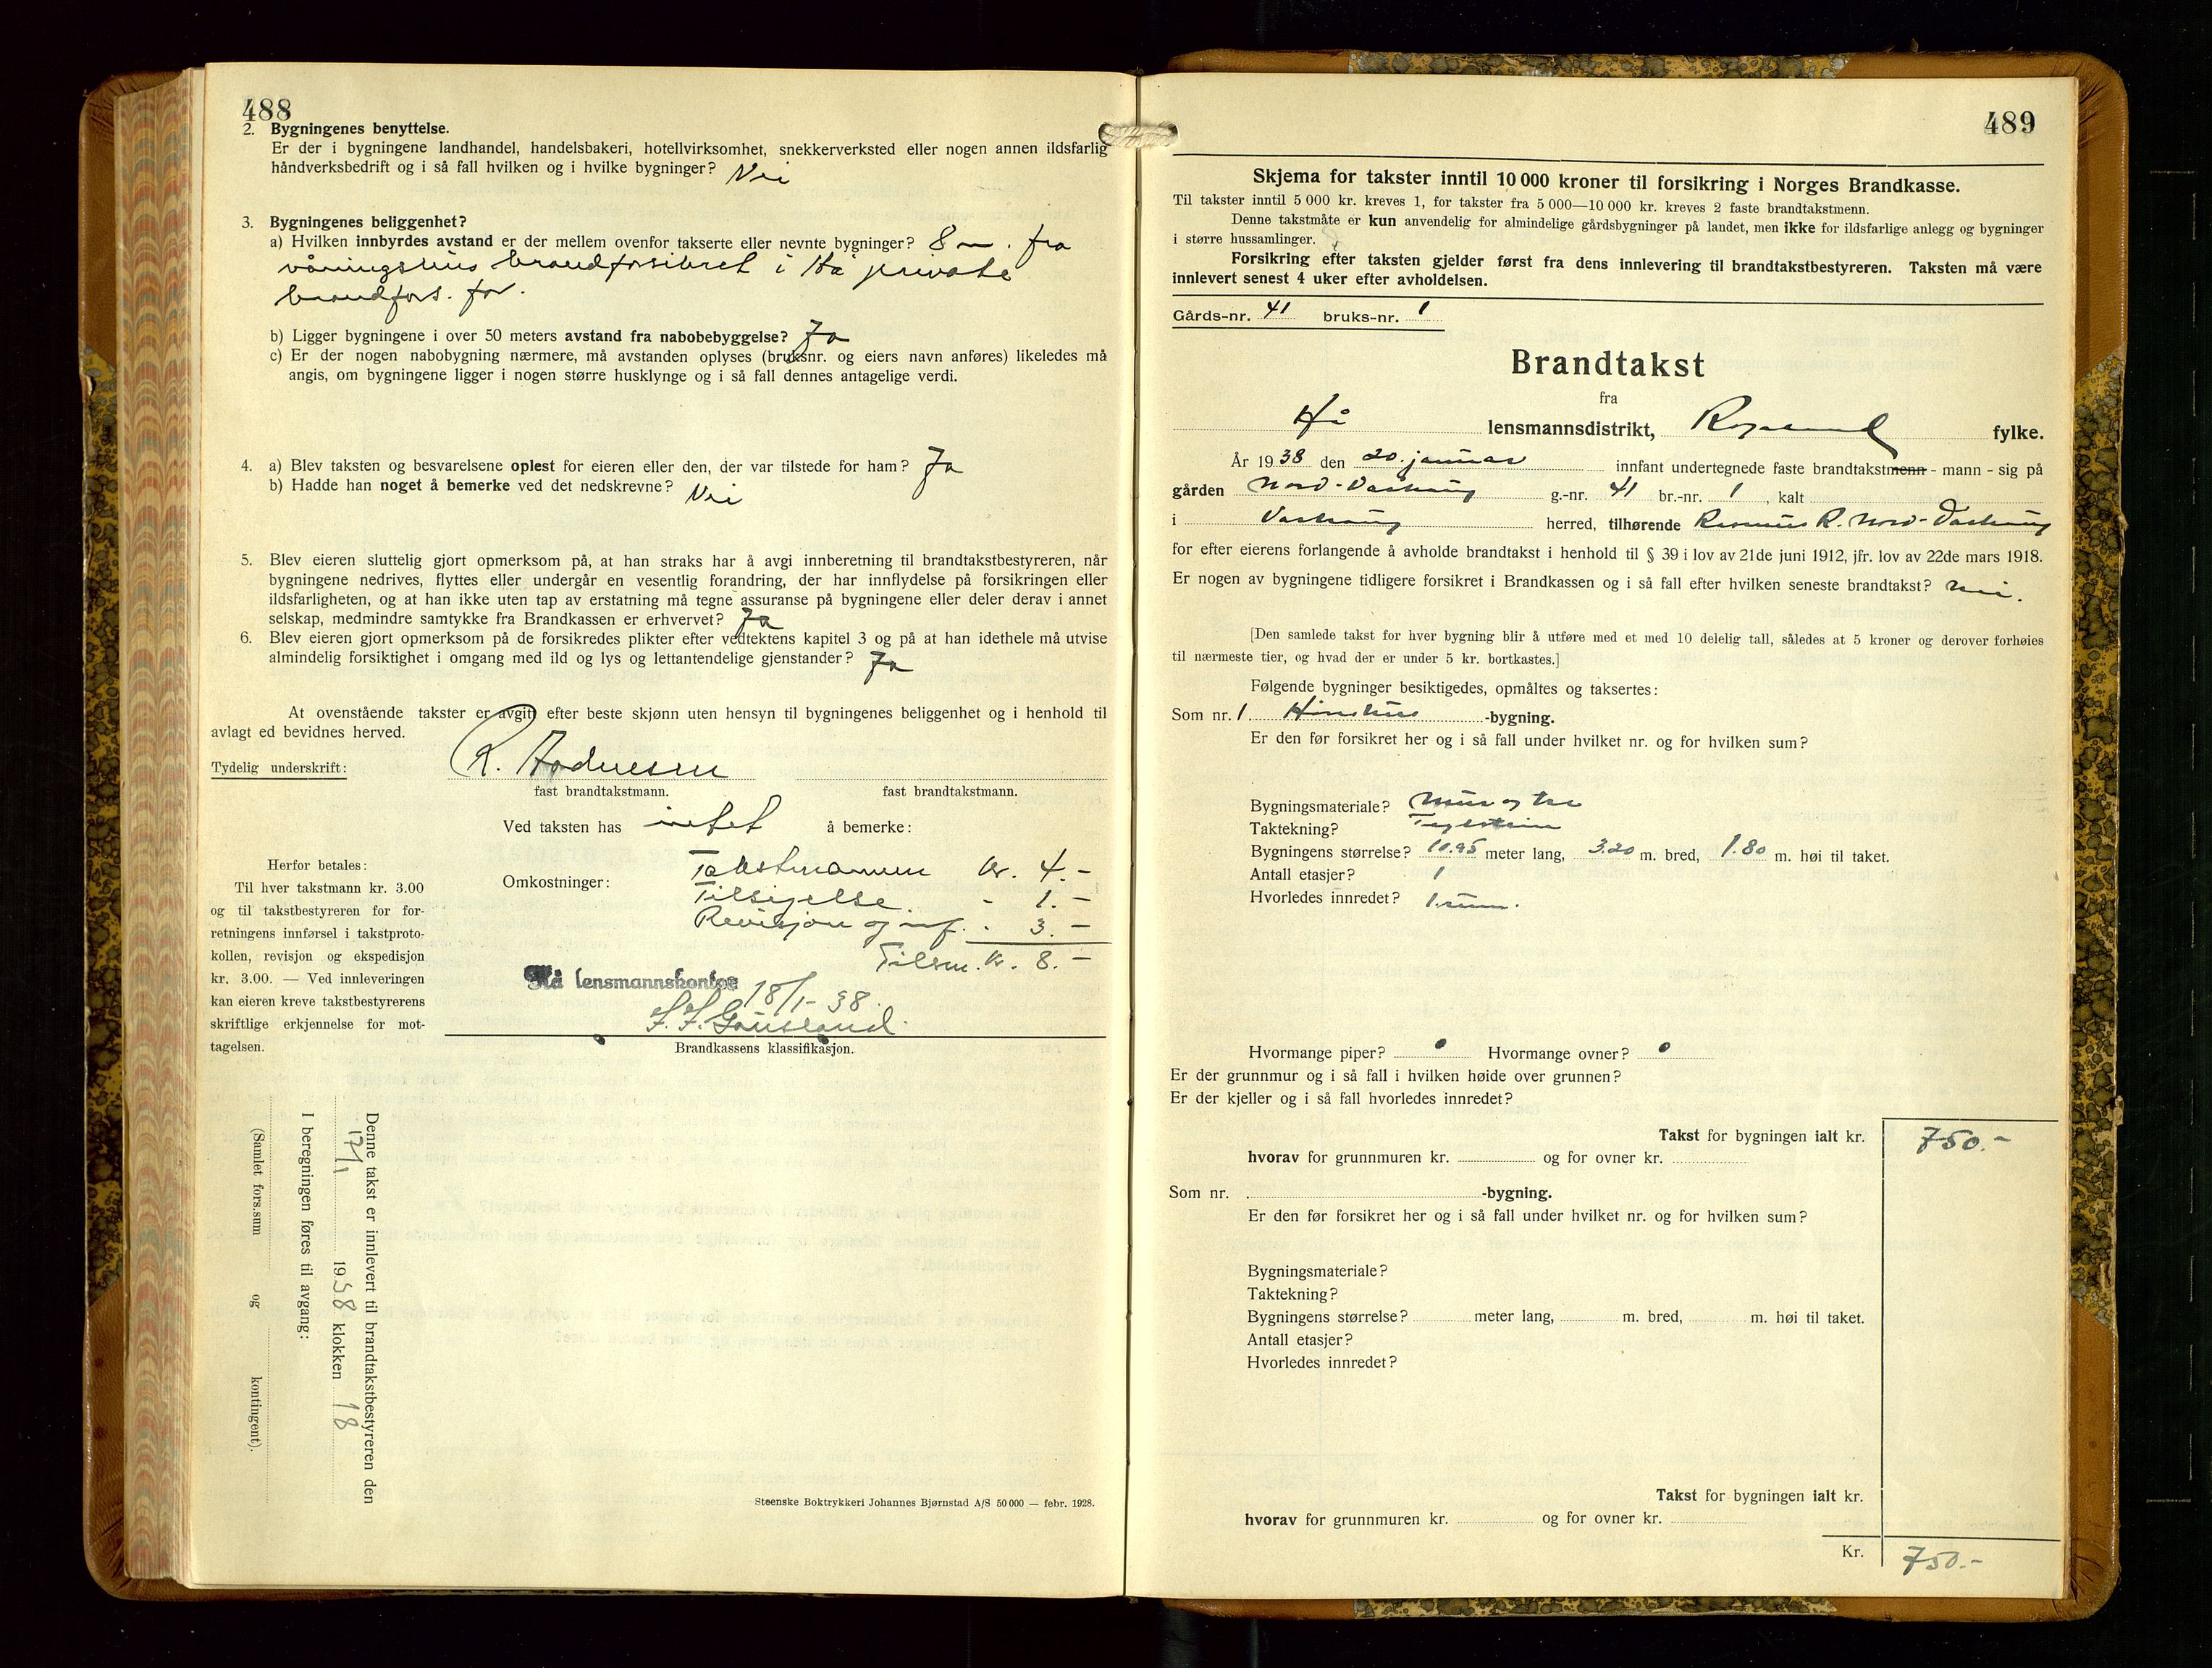 488
2. Bygningenes benyttelse.
Er der i bygningene landhandel, handelsbakeri, hotellvirksomhet, snekkerverksted eller nogen annen ildsfarlig
håndverksbedrift og i så fall hvilken og i hvilke bygninger? Nei
3. Bygningenes beliggenhet?
a) Hvilken innbyrdes avstand er der mellem ovenfor takserte eller nevnte bygninger? 8 m. fra
våningshus brandforsikret i Hå private
brandfors. for.
b) Ligger bygningene i over 50 meters avstand fra nabobebyggelse? Ja
c) Er der nogen nabobygning nærmere, må avstanden oplyses (bruksnr. og eiers navn anføres) likeledes må
angis, om bygningene ligger i nogen større husklynge og i så fall dennes antagelige verdi.
4. a) Blev taksten og besvarelsene oplest for eieren eller den, der var tilstede for ham? Ja
b) Hadde han noget å bemerke ved det nedskrevne? Nei
5. Blev eieren sluttelig gjort opmerksom på, at han straks har å avgi innberetning til brandtakstbestyreren, når
bygningene nedrives, flyttes eller undergår en vesentlig forandring, der har innflydelse på forsikringen eller
ildsfarligheten, og at han ikke uten tap av erstatning må tegne assuranse på bygningene eller deler derav i annet
selskap, medmindre samtykke fra Brandkassen er erhvervet? Ja
6. Blev eieren gjort opmerksom på de forsikredes plikter efter vedtektens kapitel 3 og på at han idethele må utvise
almindelig forsiktighet i omgang med ild og lys og lettantendelige gjenstander? Ja
At ovenstående takster er avgitt efter beste skjønn uten hensyn til bygningenes beliggenhet og i henhold til
avlagt ed bevidnes herved.
Tydelig underskrift: R.
fast brandtakstmann. fast brandtakstmann.
Ved taksten has intet å bemerke:
Herfor betales:
Til hver takstmann kr. 3.00
og til takstbestyreren for for-
retningens innførsel i takstproto-
kollen, revisjon og ekspedisjon
kr. 3.00. — Ved innleveringen
kan eieren kreve takstbestyrerens
skriftlige erkjennelse for mot-
tagelsen.
Omkostninger: Takstmannen kr. 4.-
Tilsigelse - 1.-
Revisjon og inf. - 3.-
Tilsm. kr. 8.-
Hå lensmannskontor 18/1-38.
Brandkassens klassifikasjon.
Denne takst er innlevert til brandtakstbestyreren den
17/1 1938 klokken 18
I beregningen føres til avgang:
(Samlet fors.sum og kontingent).
Steenske Boktrykkeri Johannes Bjørnstad A/S 50 000 — febr. 1928.
489
Skjema for takster inntil 10 000 kroner til forsikring i Norges Brandkasse.
Til takster inntil 5 000 kr. kreves 1, for takster fra 5 000—10 000 kr. kreves 2 faste brandtakstmenn.
Denne takstmåte er kun anvendelig for almindelige gårdsbygninger på landet, men ikke for ildsfarlige anlegg og bygninger
i større hussamlinger.
Forsikring efter taksten gjelder først fra dens innlevering til brandtakstbestyreren. Taksten må være
innlevert senest 4 uker efter avholdelsen.
Gårds-nr. 41 bruks-nr. 1
Brandtakst
fra
Hå lensmannsdistrikt, Rogaland fylke.
År 1938 den 20. januar innfant undertegnede faste brandtakstmenn - mann - sig på
gården Nord-Varhaug g.-nr. 41 br.-nr. 1, kalt
i Varhaug herred, tilhørende Rasmus R. Nord-Varhaug
for efter eierens forlangende å avholde brandtakst i henhold til § 39 i lov av 21de juni 1912, jfr. lov av 22de mars 1918.
Er nogen av bygningene tidligere forsikret i Brandkassen og i så fall efter hvilken seneste brandtakst? nei.
[Den samlede takst for hver bygning blir å utføre med et med 10 delelig tall, således at 5 kroner og derover forhøies
til nærmeste tier, og hvad der er under 5 kr. bortkastes.]
Følgende bygninger besiktigedes, opmåltes og taksertes:
Som nr. 1 Hønshus -bygning.
Er den før forsikret her og i så fall under hvilket nr. og for hvilken sum?
Bygningsmateriale? Mur og tre
Taktekning? Teglstein
Bygningens størrelse? 10.95 meter lang, 3.20 m. bred, 1.80 m. høi til taket.
Antall etasjer? 1
Hvorledes innredet? 1 rum.
Hvormange piper? 0 Hvormange ovner? 0
Er der grunnmur og i så fall i hvilken høide over grunnen?
Er der kjeller og i så fall hvorledes innredet?
Takst for bygningen ialt kr. 750.-
hvorav for grunnmuren kr. og for ovner kr.
Som nr. -bygning.
Er den før forsikret her og i så fall under hvilket nr. og for hvilken sum?
Bygningsmateriale?
Taktekning?
Bygningens størrelse? meter lang, m. bred, m. høi til taket.
Antall etasjer?
Hvorledes innredet?
Takst for bygningen ialt kr.
hvorav for grunnmuren kr. og for ovner kr.
Kr. 750.-